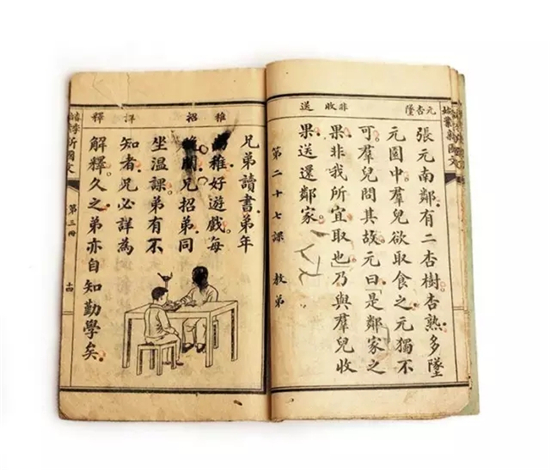 元杏墜
非收送
張元南鄰有二杏樹杏熟多墜
元園中羣兒欲取食之元獨不
可羣兒問其故元曰「是鄰家之
果非我所宜取也」乃與羣兒收
果送還鄰家
第二十七課 教弟
稚招詳釋
兄弟讀書弟年
尚稚好遊戲每
晚間兄招弟同
坐溫課弟有不
知者兄必詳為
解釋久之弟亦自知勤學矣
新國文 第三冊 十四